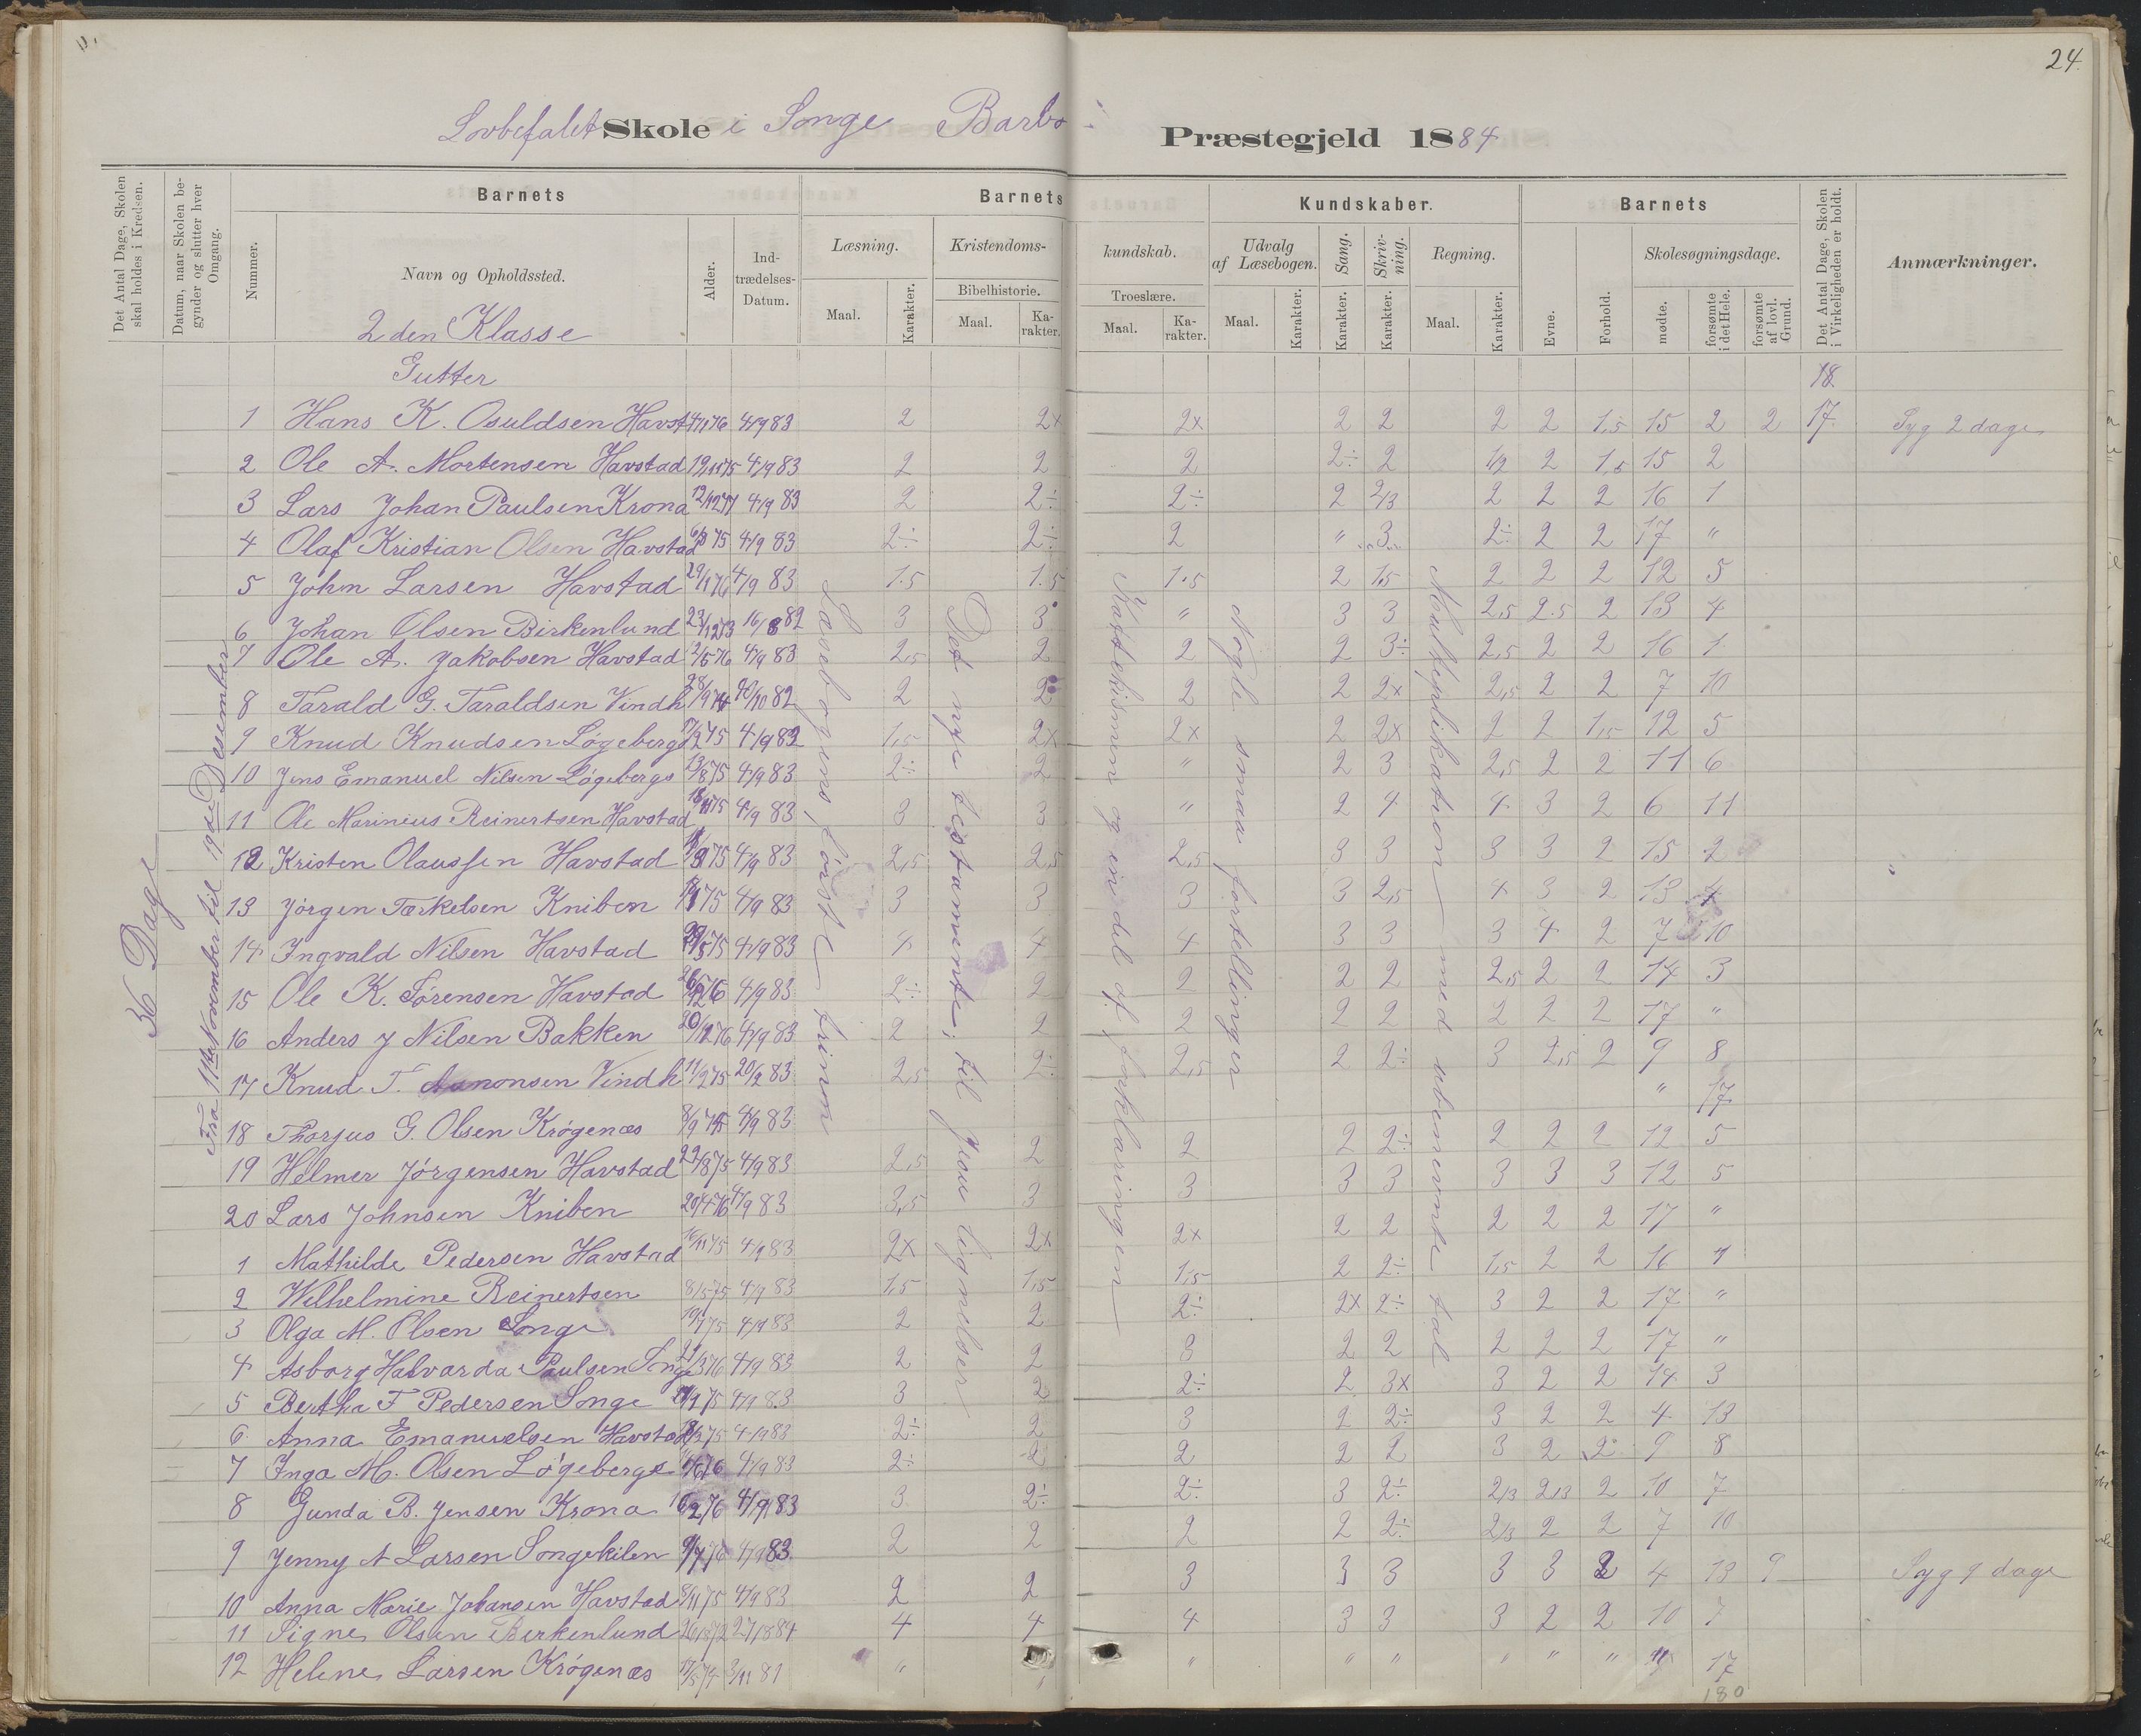 24.
Lovbefalet Skole i Songe Barbo Præstegjeld 1884
Det Antal Dage, Skolen skal holdes i Kredsen.
Datum, naar Skolen begynder og slutter hver Omgang.
Nummer.
Barnets
Navn og Opholdssted.
Alder.
Indtrædelses-Datum.
Barnets Kundskaber.
Læsning.
Maal.
Karakter.
Kristendoms-kundskab.
Bibelhistorie.
Maal.
Karakter.
Troeslære.
Maal.
Karakter.
Udvalg af Læsebogen.
Maal.
Karakter.
Sang.
Karakter.
Skrivning.
Karakter.
Regning.
Maal.
Karakter.
Barnets
Evne.
Forhold.
Skolesøgningsdage.
mødte.
forsømte i det Hele.
forsømte af lovl. Grund.
Det Antal Dage, Skolen i Virkeligheden er holdt.
Anmærkninger.
36 Dage
Fra 11te November til 19de Desember
2den Klasse
Gutter
18
1 Hans K. Osuldsen Havst 4/9 83 2 2x 2x 2 2 2 2 1,5 15 2 2 17 Syg 2 dage
2 Ole A. Mortensen Havstad 4/9 83 2 2 2 2÷ 2 1/2 2 1,5 15 2
3 Lars Johan Paulsen Krona 4/9 83 2 2÷ 2÷ 2 2/3 2 2 2 16 1
4 Olaf Kristian Olsen Havstad 4/9 83 2÷ 2÷ 2 " 3 2÷ 2 2 17 "
5 John Larsen Havstad 4/9 83 1.5 1.5 1.5 2 1,5 2 2 2 12 5
6 Johan Olsen Birkenlund 16/8 82 3 3 " 3 3 2,5 2.5 2 13 4
7 Ole A. Jakobsen Havstad 2/5 76 4/9 83 2,5 2 2 2 3÷ 2,5 2 2 16 1
8 Tarald G. Taraldsen Vindh 2 2 2 2 2x 2,5 2 2 7 10
9 Knud Knudsen Løgeberg 1,5 2x 2x 2 2x 2 2 1,5 12 5
10 Jens Emanuel Nilsen Løgebergs 13/8 75 4/9 83 2÷ 2 " 2 3 2,5 2 2 11 6
11 Ole Marinius Reinertsen Havstad 4/9 83 3 3 " 2 4 4 3 2 6 11
12 Kristen Olaussen Havstad 4/9 83 2,5 2,5 2,5 3 3 3 3 2 15 2
13 Jörgen Tærkelsen Kniben 4/9 83 3 3 3 3 2,5 4 3 2 13 4
14 Ingvald Nilsen Havstad 4/9 83 4 4 4 3 3 3 4 2 7 10
15 Ole K. Sørensen Havstad 4/9 83 2÷ 2 2 2 2 2,5 2 2 14 3
16 Anders J Nilsen Bakken 4/9 83 2 2 2 2 2 2 2 2 17 "
17 Knud T. Vindh 11/2 75 20/2 83 2,5 2÷ 2,5 2 2÷ 3 2,5 2 9 8
18 Thorjus G. Olsen Krøgenæs 4/9 83 " 17
19 Helmer Jörgensen Havstad 22/8 75 4/9 83 2,5 2 2 2 2÷ 2 2 2 12 5
20 Lars Johnsen Kniben 20/4 76 4/9 83 3,5 3 3 3 3 3 3 3 12 5
1 Mathilde Pedersen Havstad 4/9 83 2x 2x 2x 2 2 2 2 2 17 "
2 Wilhelmine Reinertsen 8/5 75 4/9 83 1,5 1,5 1,5 2 2÷ 1,5 2 2 16 1
3 Olga M. Olsen Songe 4/9 83 2 2 2÷ 2x 2÷ 3 2 2 17 "
4 Asborg Halvarda Paulsen Songe 4/9 83 2 2 3 2 2 2 2 2 17 "
5 Bertha F Pedersen Songe 4/9 83 3 2 2÷ 2 3x 3 2 2 14 3
6 Anna Emanuelsen Havstad 4/9 83 2÷ 2 3 2 2÷ 3 2 2 4 13
7 Inga M. Olsen Løgebergs 4/9 83 2÷ 2 2 2 2 3 2 2 9 8
8 Gunda B. Jensen Krona 4/9 83 3 2÷ 2÷ 3 2÷ 2/3 2/3 2 10 7
9 Jenny A Larsen Songekilen 4/9 83 2 2 2 2 2÷ 2/3 2 2 7 10
10 Anna Marie Johansen Havstad 8/11 75 4/9 83 2 2 3 3 3 3 3 2 4 13 9 Syg 9 dage
11 Signe Olsen Birkenlund 4 4 4 3 3 3 2 2 10 7
12 Helene Larsen Krøgenæs 3/11 81 " " " " " " " 17
180
Læsebogens förste trinn
Det nye testamente; til Jesu lignelser
Kattekismen og en del af forklaringen
Nogle smaa fortellinger
Moltteplikation med ubenevnte tal